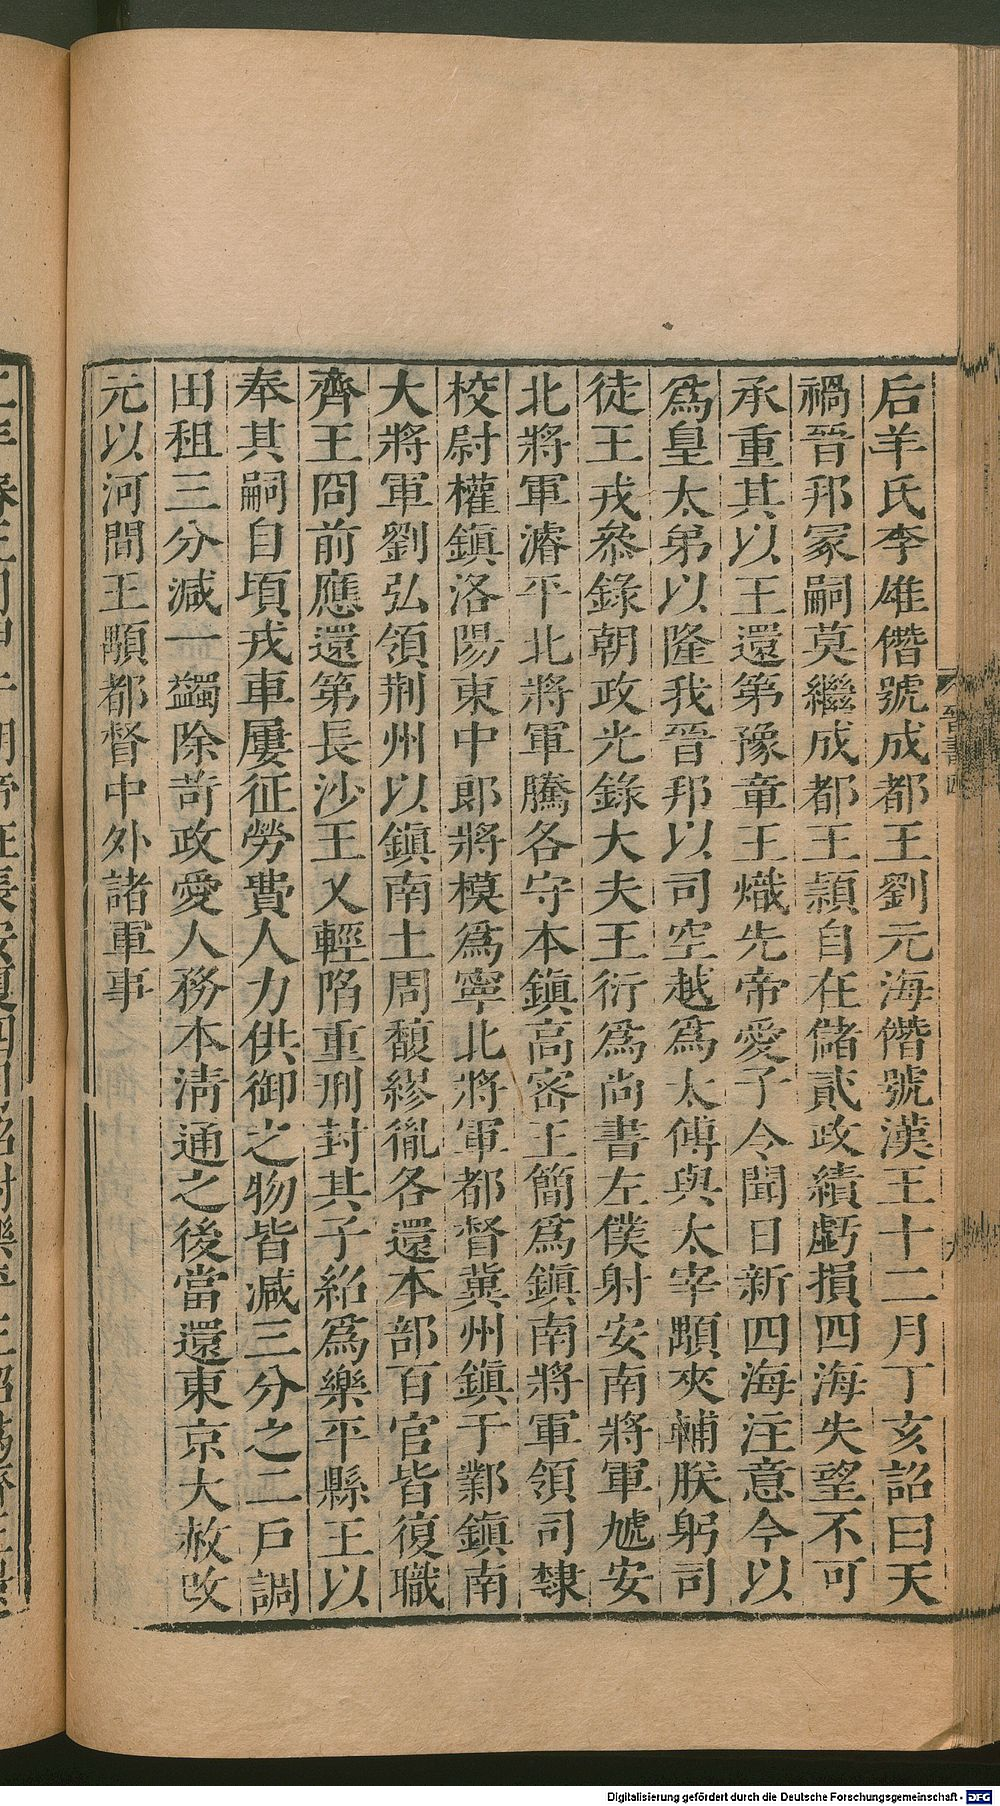 后羊氏李雄僭號成都王劉元海僭號漢王十二月丁亥詔曰天
禍晉邦冢嗣莫繼成都王穎自在儲貳政績虧損四海失望不可
承重其以王還第豫章王熾先帝愛子令聞日新四海注意今以
爲皇太弟以隆我晉邦以司空越爲太傅與太宰顒夾輔朕躬司
徒王戎叅錄朝政光錄大夫王衍爲尚書左僕射安南將軍虓安
北將軍濬平北將軍騰各守本鎮高密王簡爲鎮南將軍領司隸
校尉權鎮洛陽東中郎將模爲寧北將軍都督冀州鎮于鄴鎮南
大將軍劉弘領荆州以鎮南土周馥繆胤各還本部百官皆復職
齊王冏前應還第長沙王乂輕陷重刑封其子紹爲樂平縣王以
奉其嗣自頃戎車屢征勞費人力供御之物皆減三分之二戸調
田租三分減一蠲除苛政愛人務本清通之後當還東京大赦改
元以河間王顒都督中外諸軍事
晉書四
Digitalisierung gefördert durch die Deutsche Forschungsgemeinschaft - DFG